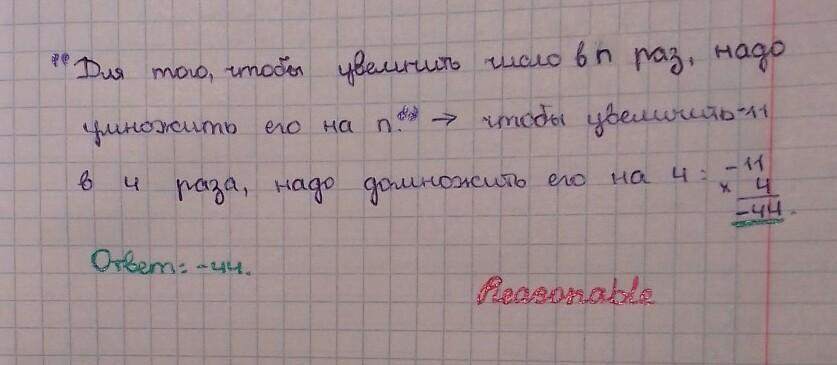 "Для того, чтобы увеличить число в n раз, надо
умножить его на n." → чтобы увеличить -11
в 4 раза, надо домножить его на 4: -11
× 4
-44.
Ответ: -44.
Reasonable